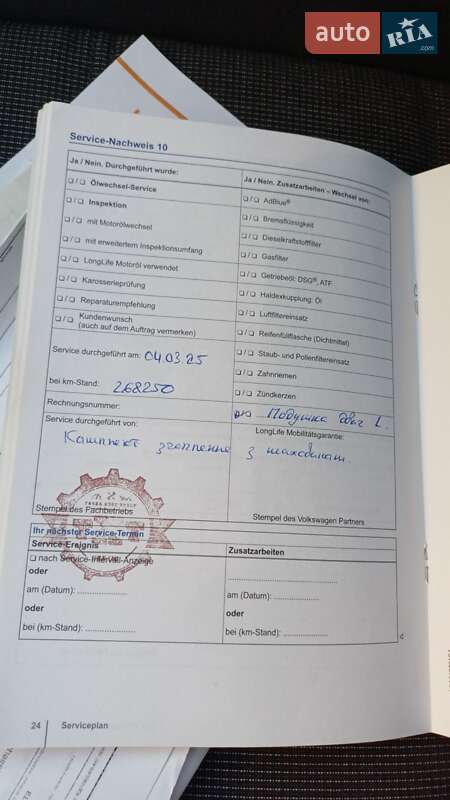 auto RIA .com
Service-Nachweis 10
Ja / Nein. Durchgeführt wurde:
❑ / ❑ Ölwechsel-Service
❑ / ❑ Inspektion
❑ / ❑ mit Motorölwechsel
❑ / ❑ mit erweitertem Inspektionsumfang
❑ / ❑ LongLife Motoröl verwendet
❑ / ❑ Karosserieprüfung
❑ / ❑ Reparaturempfehlung
❑ / ❑ Kundenwunsch
(auch auf dem Auftrag vermerken)
Service durchgeführt am: 04.03.25
bei km-Stand: 268250
Rechnungsnummer:
Service durchgeführt von:
Ja / Nein. Zusatzarbeiten – Wechsel von:
❑ / ❑ AdBlue®
❑ / ❑ Bremsflüssigkeit
❑ / ❑ Dieselkraftstofffilter
❑ / ❑ Gasfilter
❑ / ❑ Getriebeöl: DSG®, ATF
❑ / ❑ Haldexkupplung: Öl
❑ / ❑ Luftfiltereinsatz
❑ / ❑ Reifenfüllflasche (Dichtmittel)
❑ / ❑ Staub- und Pollenfiltereinsatz
❑ / ❑ Zahnriemen
❑ / ❑ Zündkerzen
❑ / ❑ Подушка двиг L.
LongLife Mobilitätsgarantie:
Комплект зчеплення з маховиком.
Stempel des Fachbetriebs
Stempel des Volkswagen Partners
Ihr nächster Service-Termin
Service-Ereignis
❑ nach Service-Intervall-Anzeige
oder
am (Datum): ....................
oder
bei (km-Stand): ....................
Zusatzarbeiten
........................................
am (Datum): ..........................
oder
bei (km-Stand): ....................
24 Serviceplan